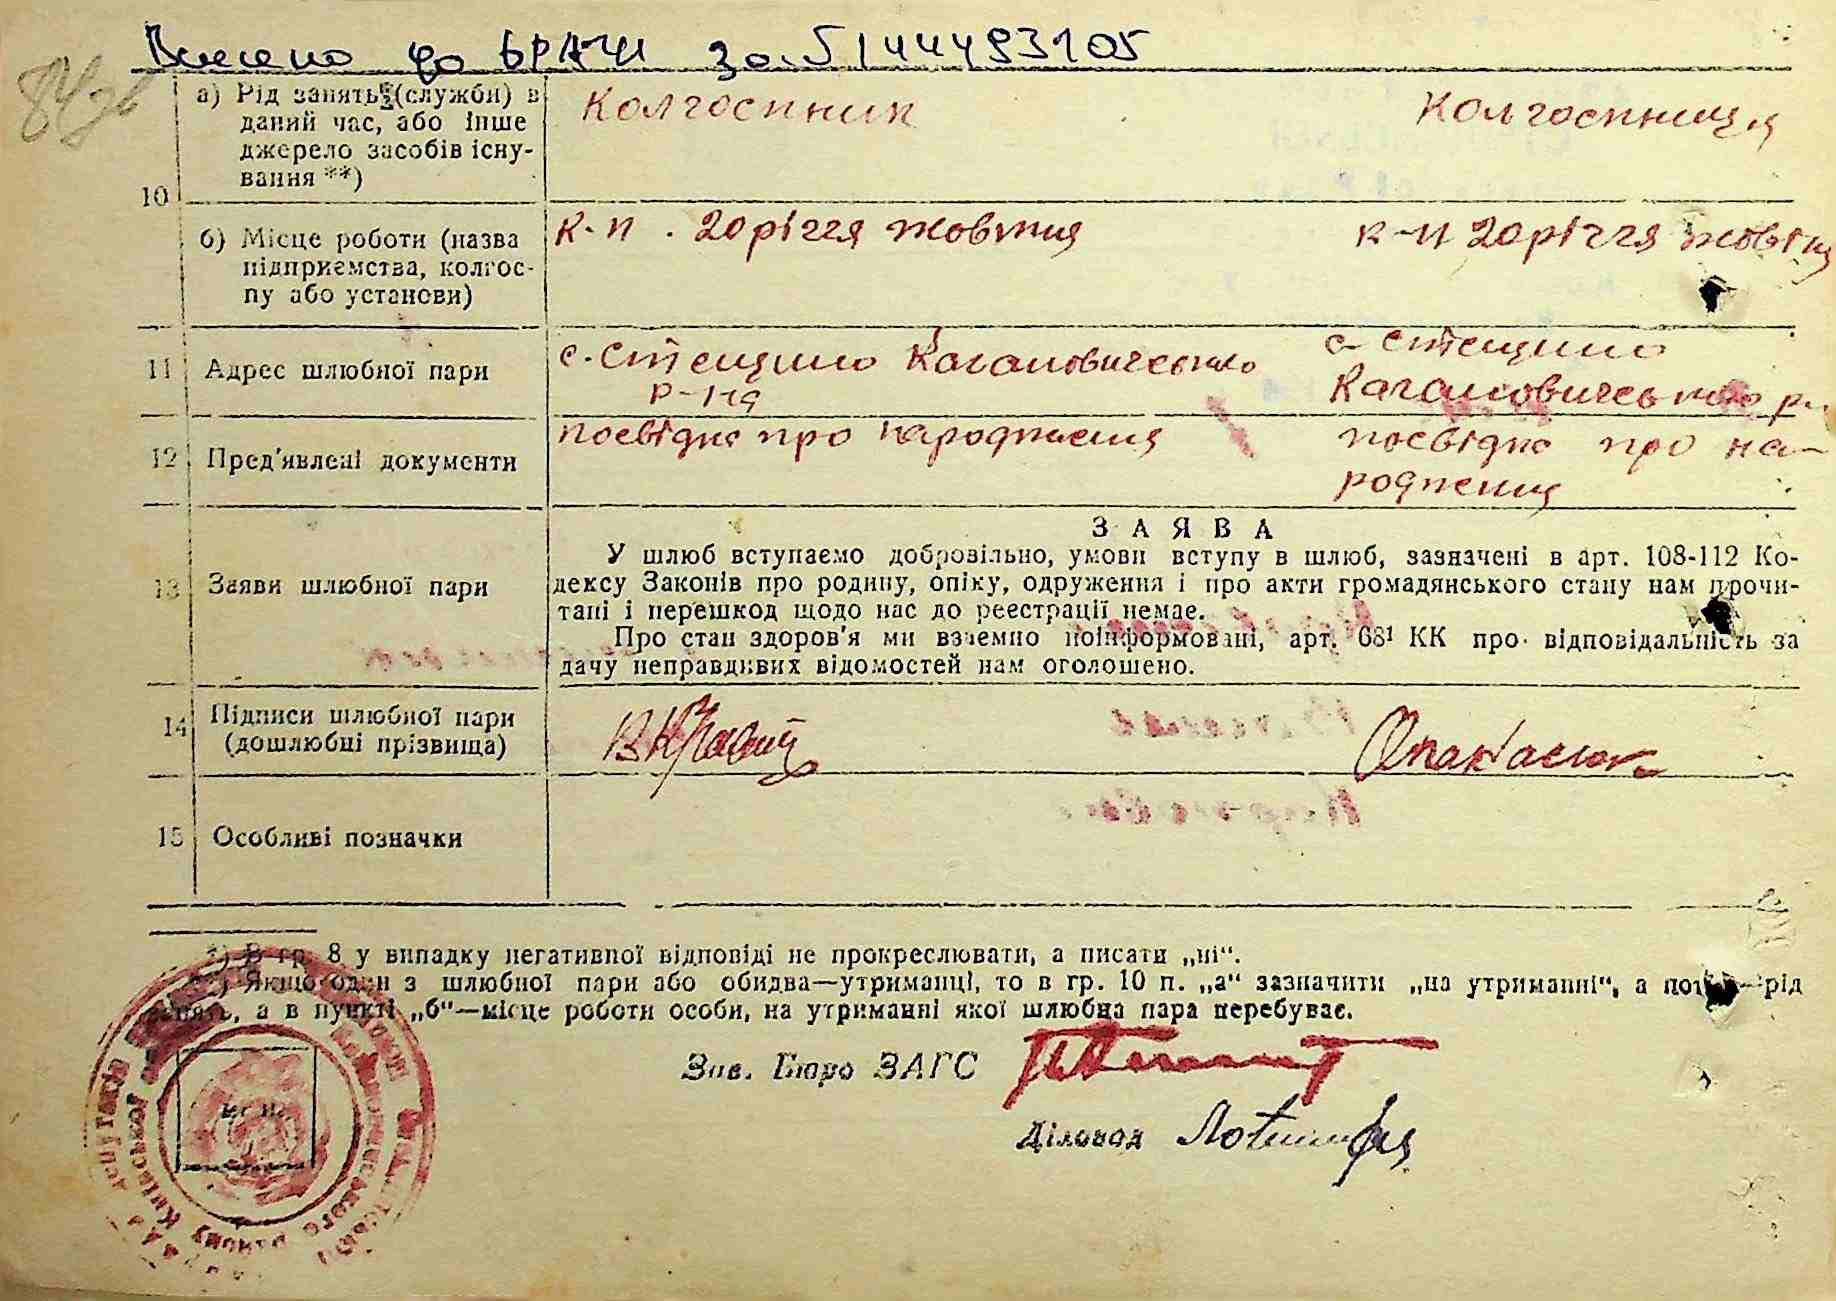 Внесено до ДРАЦС за 51444493105
84
а) Рід занять (служби) в
даний час, або інше
джерело засобів існу-
вання **)
Колгоспник Колгоспниця
10
б) Місце роботи (назва
підприємства, колгос-
пу або установи)
к-п. 20річчя жовтня к-п 20річчя жовтня
11 Адрес шлюбної пари
с. Стещино Кагановичського
р-на
с. Стещино
Кагановичського р-
12 Пред'явлені документи
посвідка про народження
посвідка про на-
родження
13 Заяви шлюбної пари
ЗАЯВА
У шлюб вступаємо добровільно, умови вступу в шлюб, зазначені в арт. 108-112 Ко-
дексу Законів про родину, опіку, одруження і про акти громадянського стану нам прочи-
тані і перешкод щодо нас до реєстрації немає.
Про стан здоров'я ми взаємно поінформовані, арт. 68¹ КК про відповідальність за
дачу неправдивих відомостей нам оголошено.
14 Підписи шлюбної пари
(дошлюбні прізвища)
Опанасюк
15 Особливі позначки
*) В гр. 8 у випадку негативної відповіді не прокреслювати, а писати „ні“.
**) Якщо один з шлюбної пари або обидва—утриманці, то в гр. 10 п. „а“ зазначити „на утриманні“, а потім—рід
занять, а в пункті „б“—місце роботи особи, на утриманні якої шлюбна пара перебуває.
Зав. Бюро ЗАГС
Діловод
депутатів Київської
району